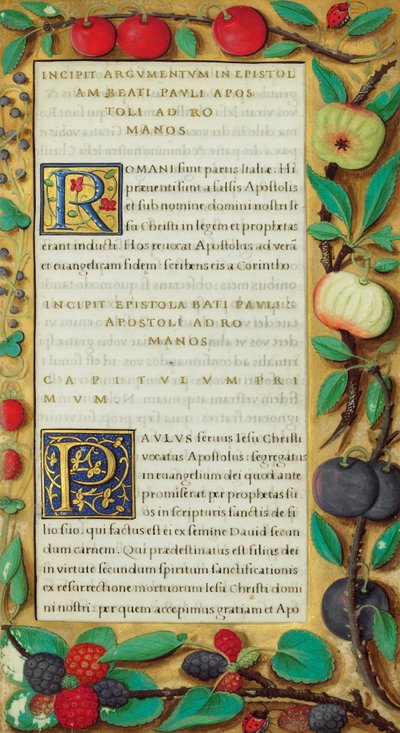 INCIPIT ARGVMENTVM IN EPISTOL
AM BEATI PAVLI APOS
TOLI AD RO
MANOS
ROMANI sunt partis Italiæ. Hi
præuenti sunt a falsis Apostolis
et sub nomine domini nostri Ie
su Christi in legem et prophetas
erant inducti. Hos reuocat Apostolus ad verā
et euangelicam fidem: scribens eis a Corintho
INCIPIT EPISTOLA BATI PAVLI
APOSTOLI AD RO
MANOS
CAPITVLVM PRI
MVM.
PAVLVS seruus Iesu Christi
vocatus Apostolus: segregatus
in euangelium dei quod ante
promiserat per prophetas su
os in scripturis sanctis de fi
lio suo, qui factus est ei ex semine Dauid secun
dum carnem. Qui prædestinatus est filius dei
in virtute secundum spiritum sanctificationis
ex resurrectione mortuorum Iesu Christi domi
ni nostri: per quem accepimus gratiam et Apo